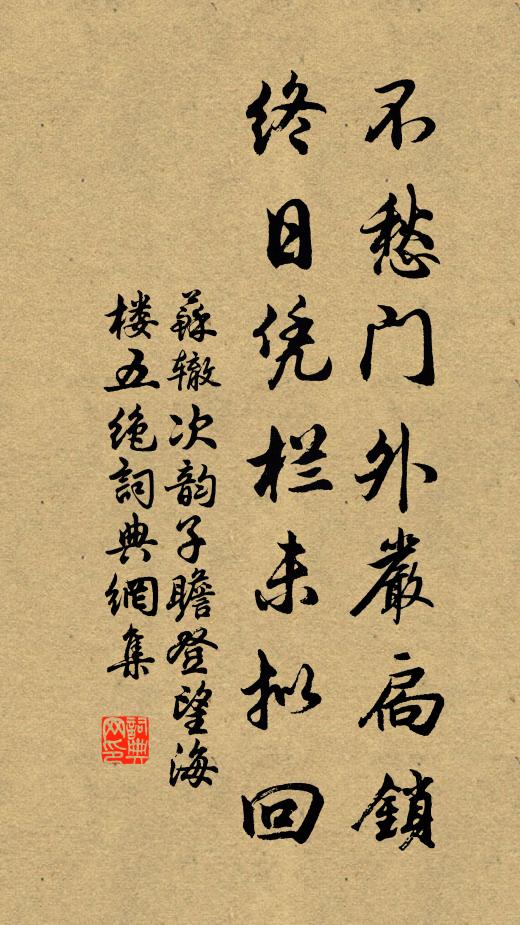 不愁门外嚴扃鎖
终日凭栏未拟回
蘇辙次韵子瞻登望海
楼五绝詞典網集
詞典网印